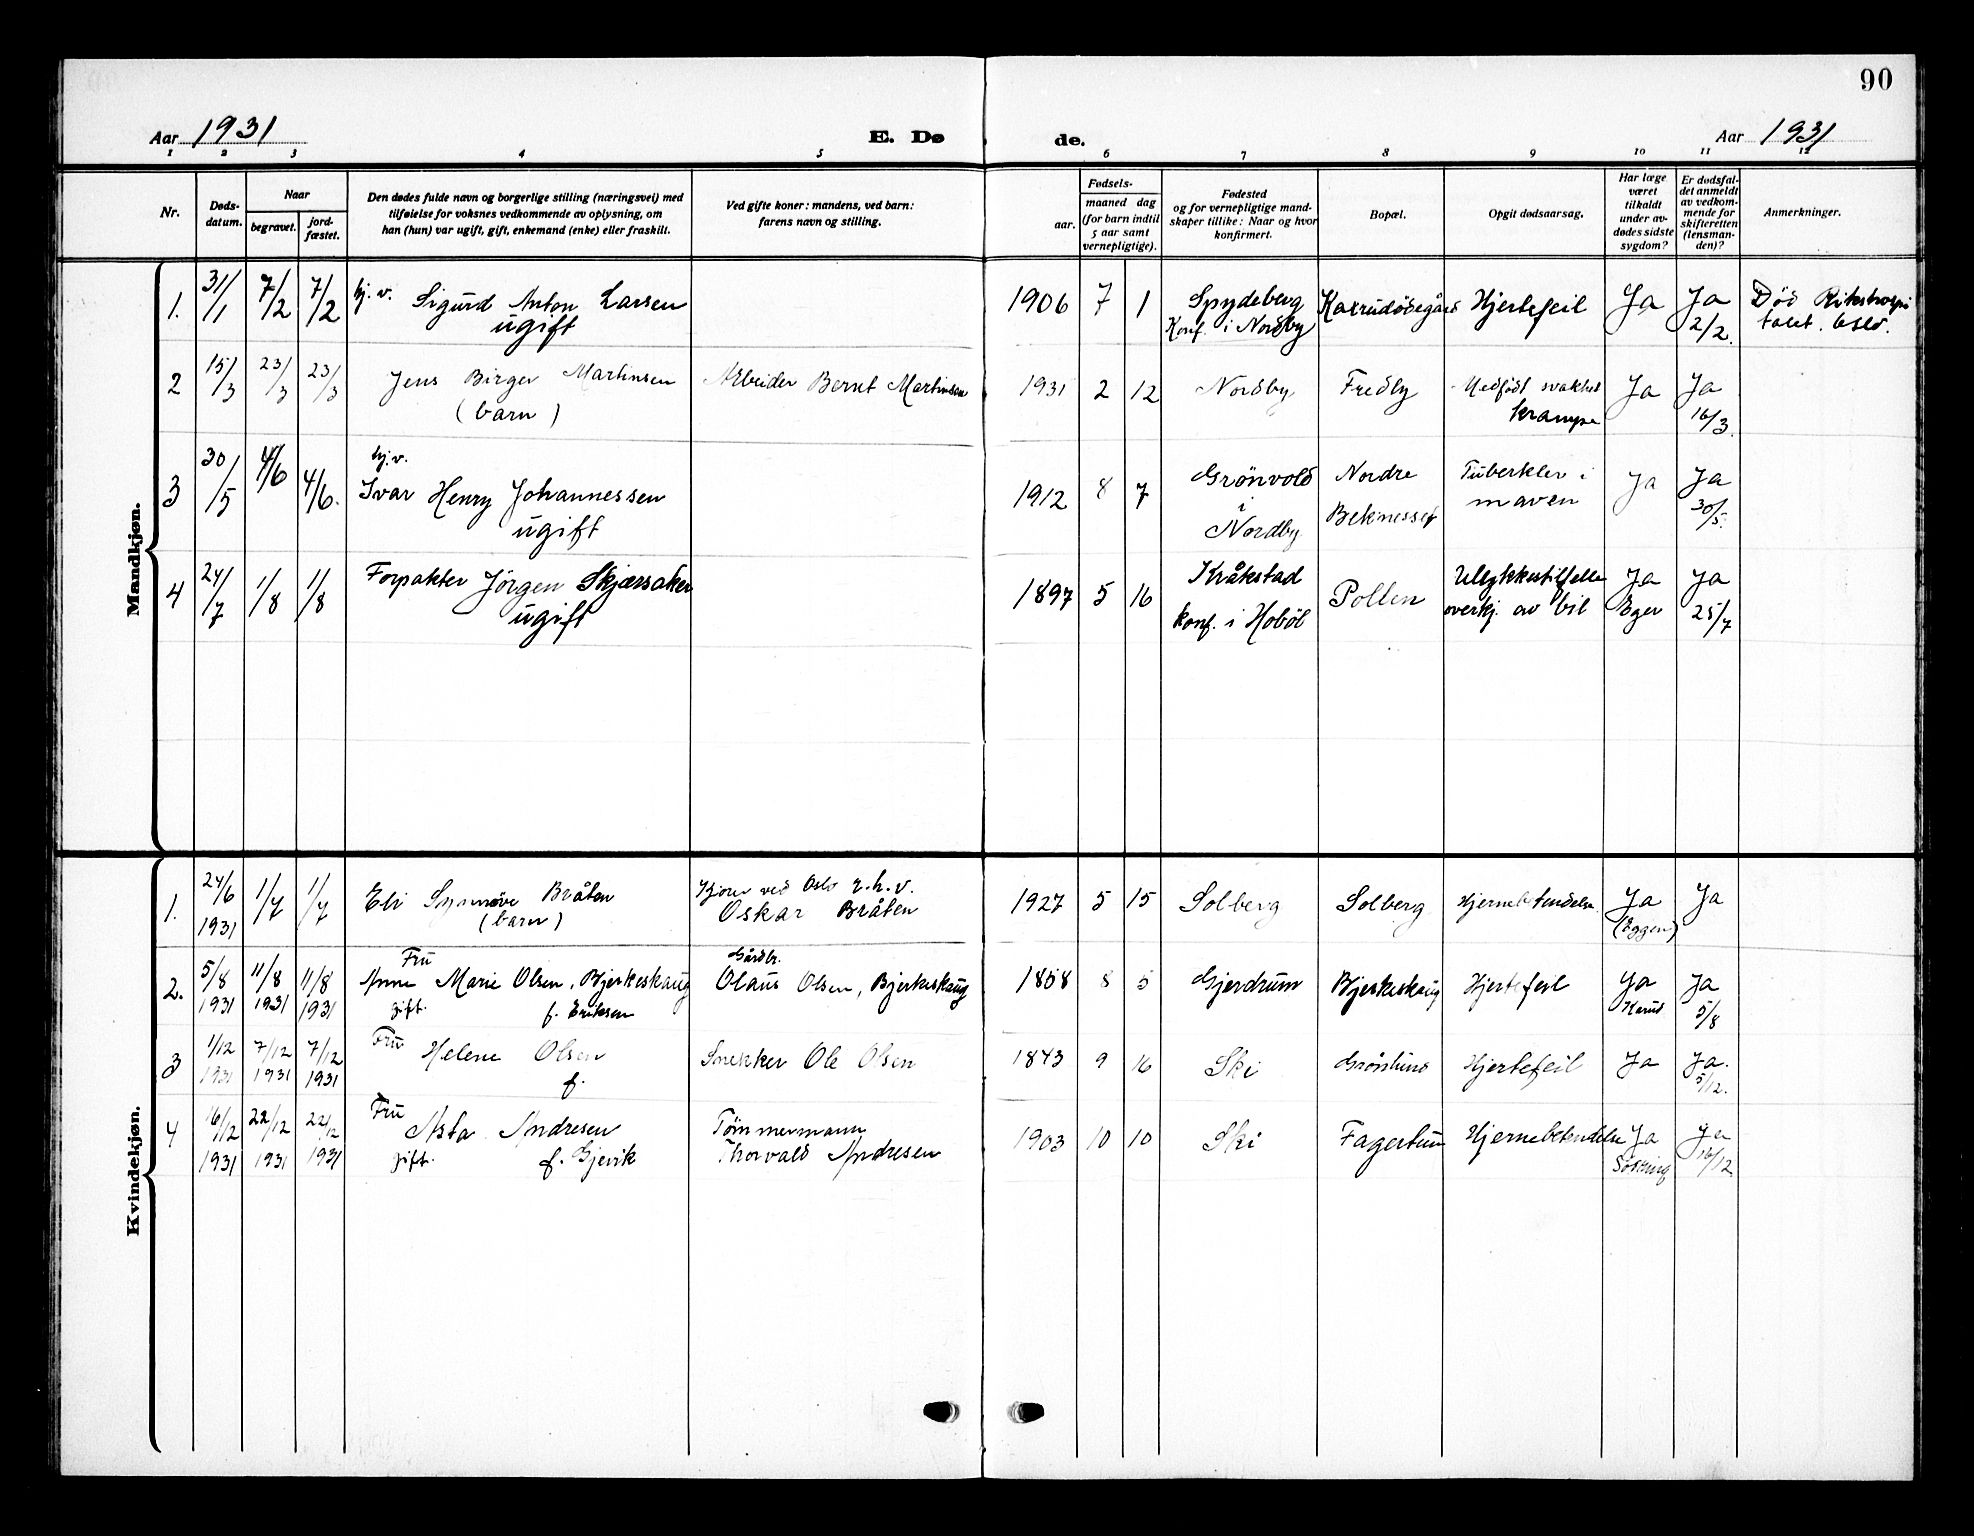 90
Aar 1931
E. Dø
de.
Aar 1931
1 2 3 4 5 6 7 8 9 10 11 12
Nr.
Døds-
datum.
Naar
begravet.
jord-
fæstet.
Den dødes fulde navn og borgerlige stilling (næringsvei) med
tilføielse for voksnes vedkommende av oplysning, om
han (hun) var ugift, gift, enkemand (enke) eller fraskilt.
Ved gifte koner: mandens, ved barn:
farens navn og stilling.
Fødsels-
aar.
maaned dag
(for barn indtil
5 aar samt
vernepligtige).
Fødested
og for vernepligtige mand-
skaper tillike: Naar og hvor
konfirmert.
Bopæl.
Opgit dødsaarsag.
Har læge
været
tilkaldt
under av-
dødes sidste
sygdom?
Er dødsfal-
det anmeldt
av vedkom-
mende for
skifteretten
(lensman-
den)?
Anmerkninger.
Mandkjøn.
1. 31/1 7/2 7/2 hj. v. Sigurd Anton Larsen
ugift
1906 7 1 Spydeberg
Konf. i Nordby
Hjertefeil Ja Ja
2/2.
Død Rikshospi
talet. Oslo.
2 15/3 23/3 23/3 Jens Birger Martinsen
(barn)
Arbeider Bernt Martinsen
1931 2 12 Nordby Fredly Medfödt svakhet
krampe
Ja Ja
16/3.
3 30/5 4/6 4/6. hj. v.
Ivar Henry Johannessen
ugift
1912 8 7 Grönvold
i
Nordby
Nordre
Tuberkler i
maven
Ja Ja
30/5.
4 24/7 1/8 1/8 Forpakter Jörgen Skjærsaker
ugift
1897 5 16 Kråkstad
konf. i Hobøl
Pollen Ulykkestilfelle
overkj. av bil
Ja
Eger
Ja
25/7
Kvindekjøn.
1. 24/6
1931
1/7 1/7 Eli Synnöve Bråten
(barn)
ved Oslo
Oskar Bråten
1927 5 15 Solberg Solberg Hjernebetendelse. Ja
(Eggen)
Ja
2. 5/8
1931
11/8
1931
11/8
1931
Fru
Anne Marie Olsen, Bjerkeskaug
gift. f. Eriksen
Gårdbr.
Olaus Olsen, Bjerkeskaug
1858 8 5 Gjerdrum Bjerkeskaug Hjertefeil Ja
Ja
5/8
3 1/12
1931
7/12
1931
7/12
1931
Fru Helene Olsen
f.
Snekker Ole Olsen
1843 9 16 Ski Grönlund Hjertefeil Ja Ja.
5/12.
4 16/12
1931
22/12
1931
22/12
1931
Fru Asta Andresen
gift. f. Gjevik
Tömmermann
Thorvald Andresen
1903 10 10 Ski Fagertun Hjernebetendelse Ja
Ja
16/12